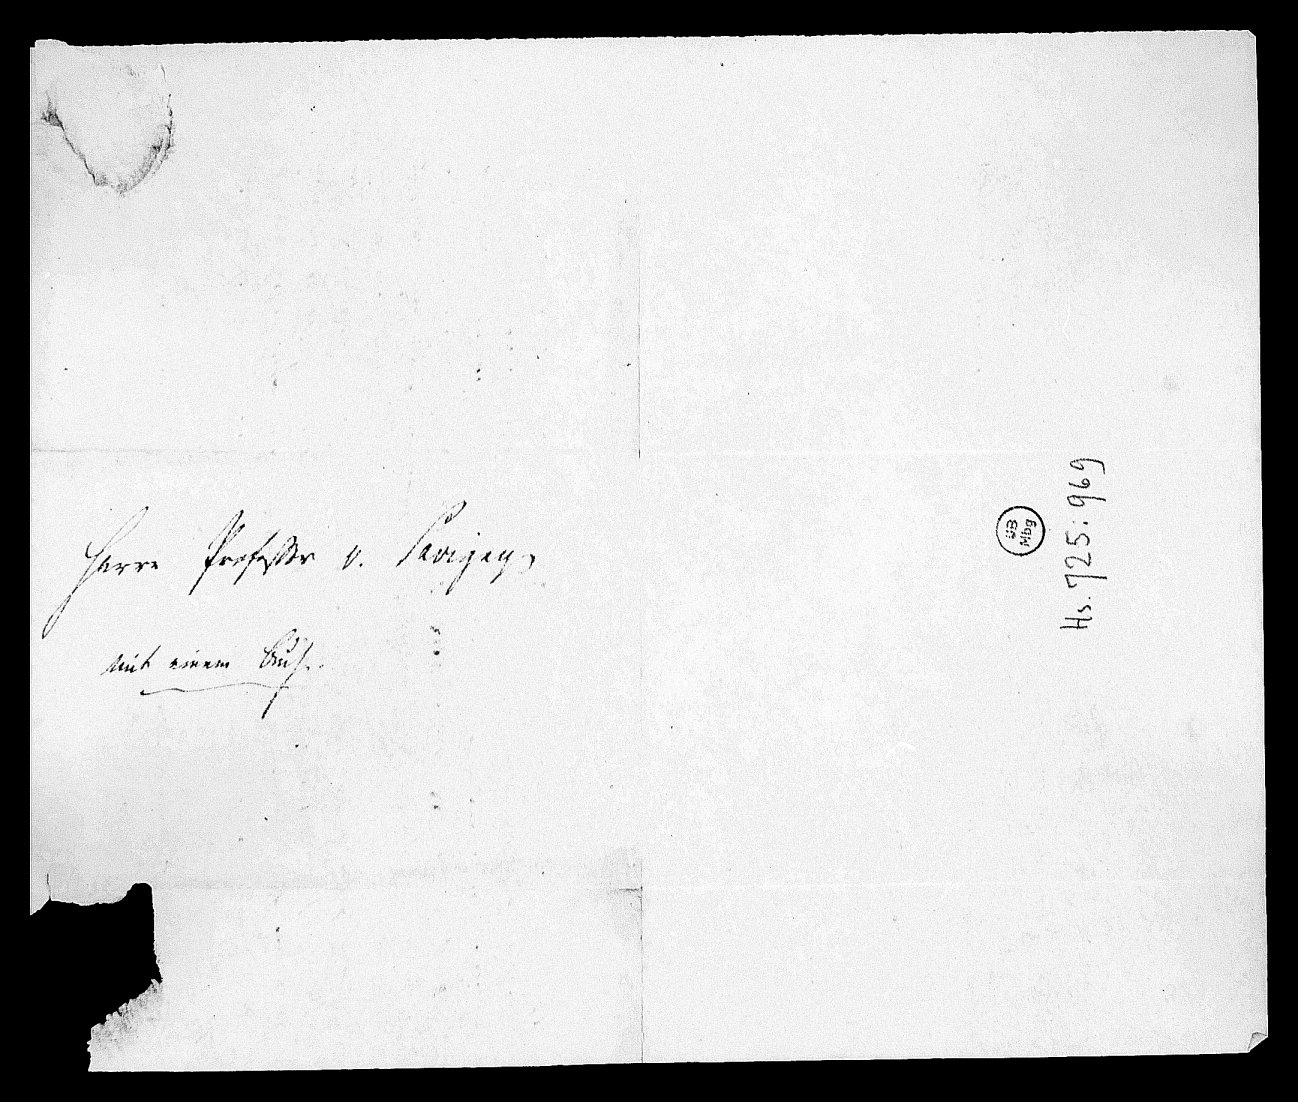 Herrn Professor v. Savigny
mit einem Buch.
UB
Mbg
Hs. 725:969